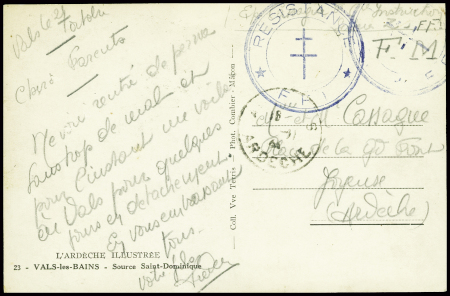 Vals le 21
Chers Parents
Me voici rentré de perm
sans trop de mal et
pour l'instant me voilà
en Vals pour quelques
jours en détachement
En vous embrassant
tous.
L'ARDÈCHE ILLUSTRÉE
23 - VALS-les-BAINS - Source Saint-Dominique
Coll. Vve Terris - Phot. Combier - Mâcon
RESISTANCE
F.F.I
F.M
ARDÈCHE
Cassagne
Place de la
Joyeuse
(Ardèche)